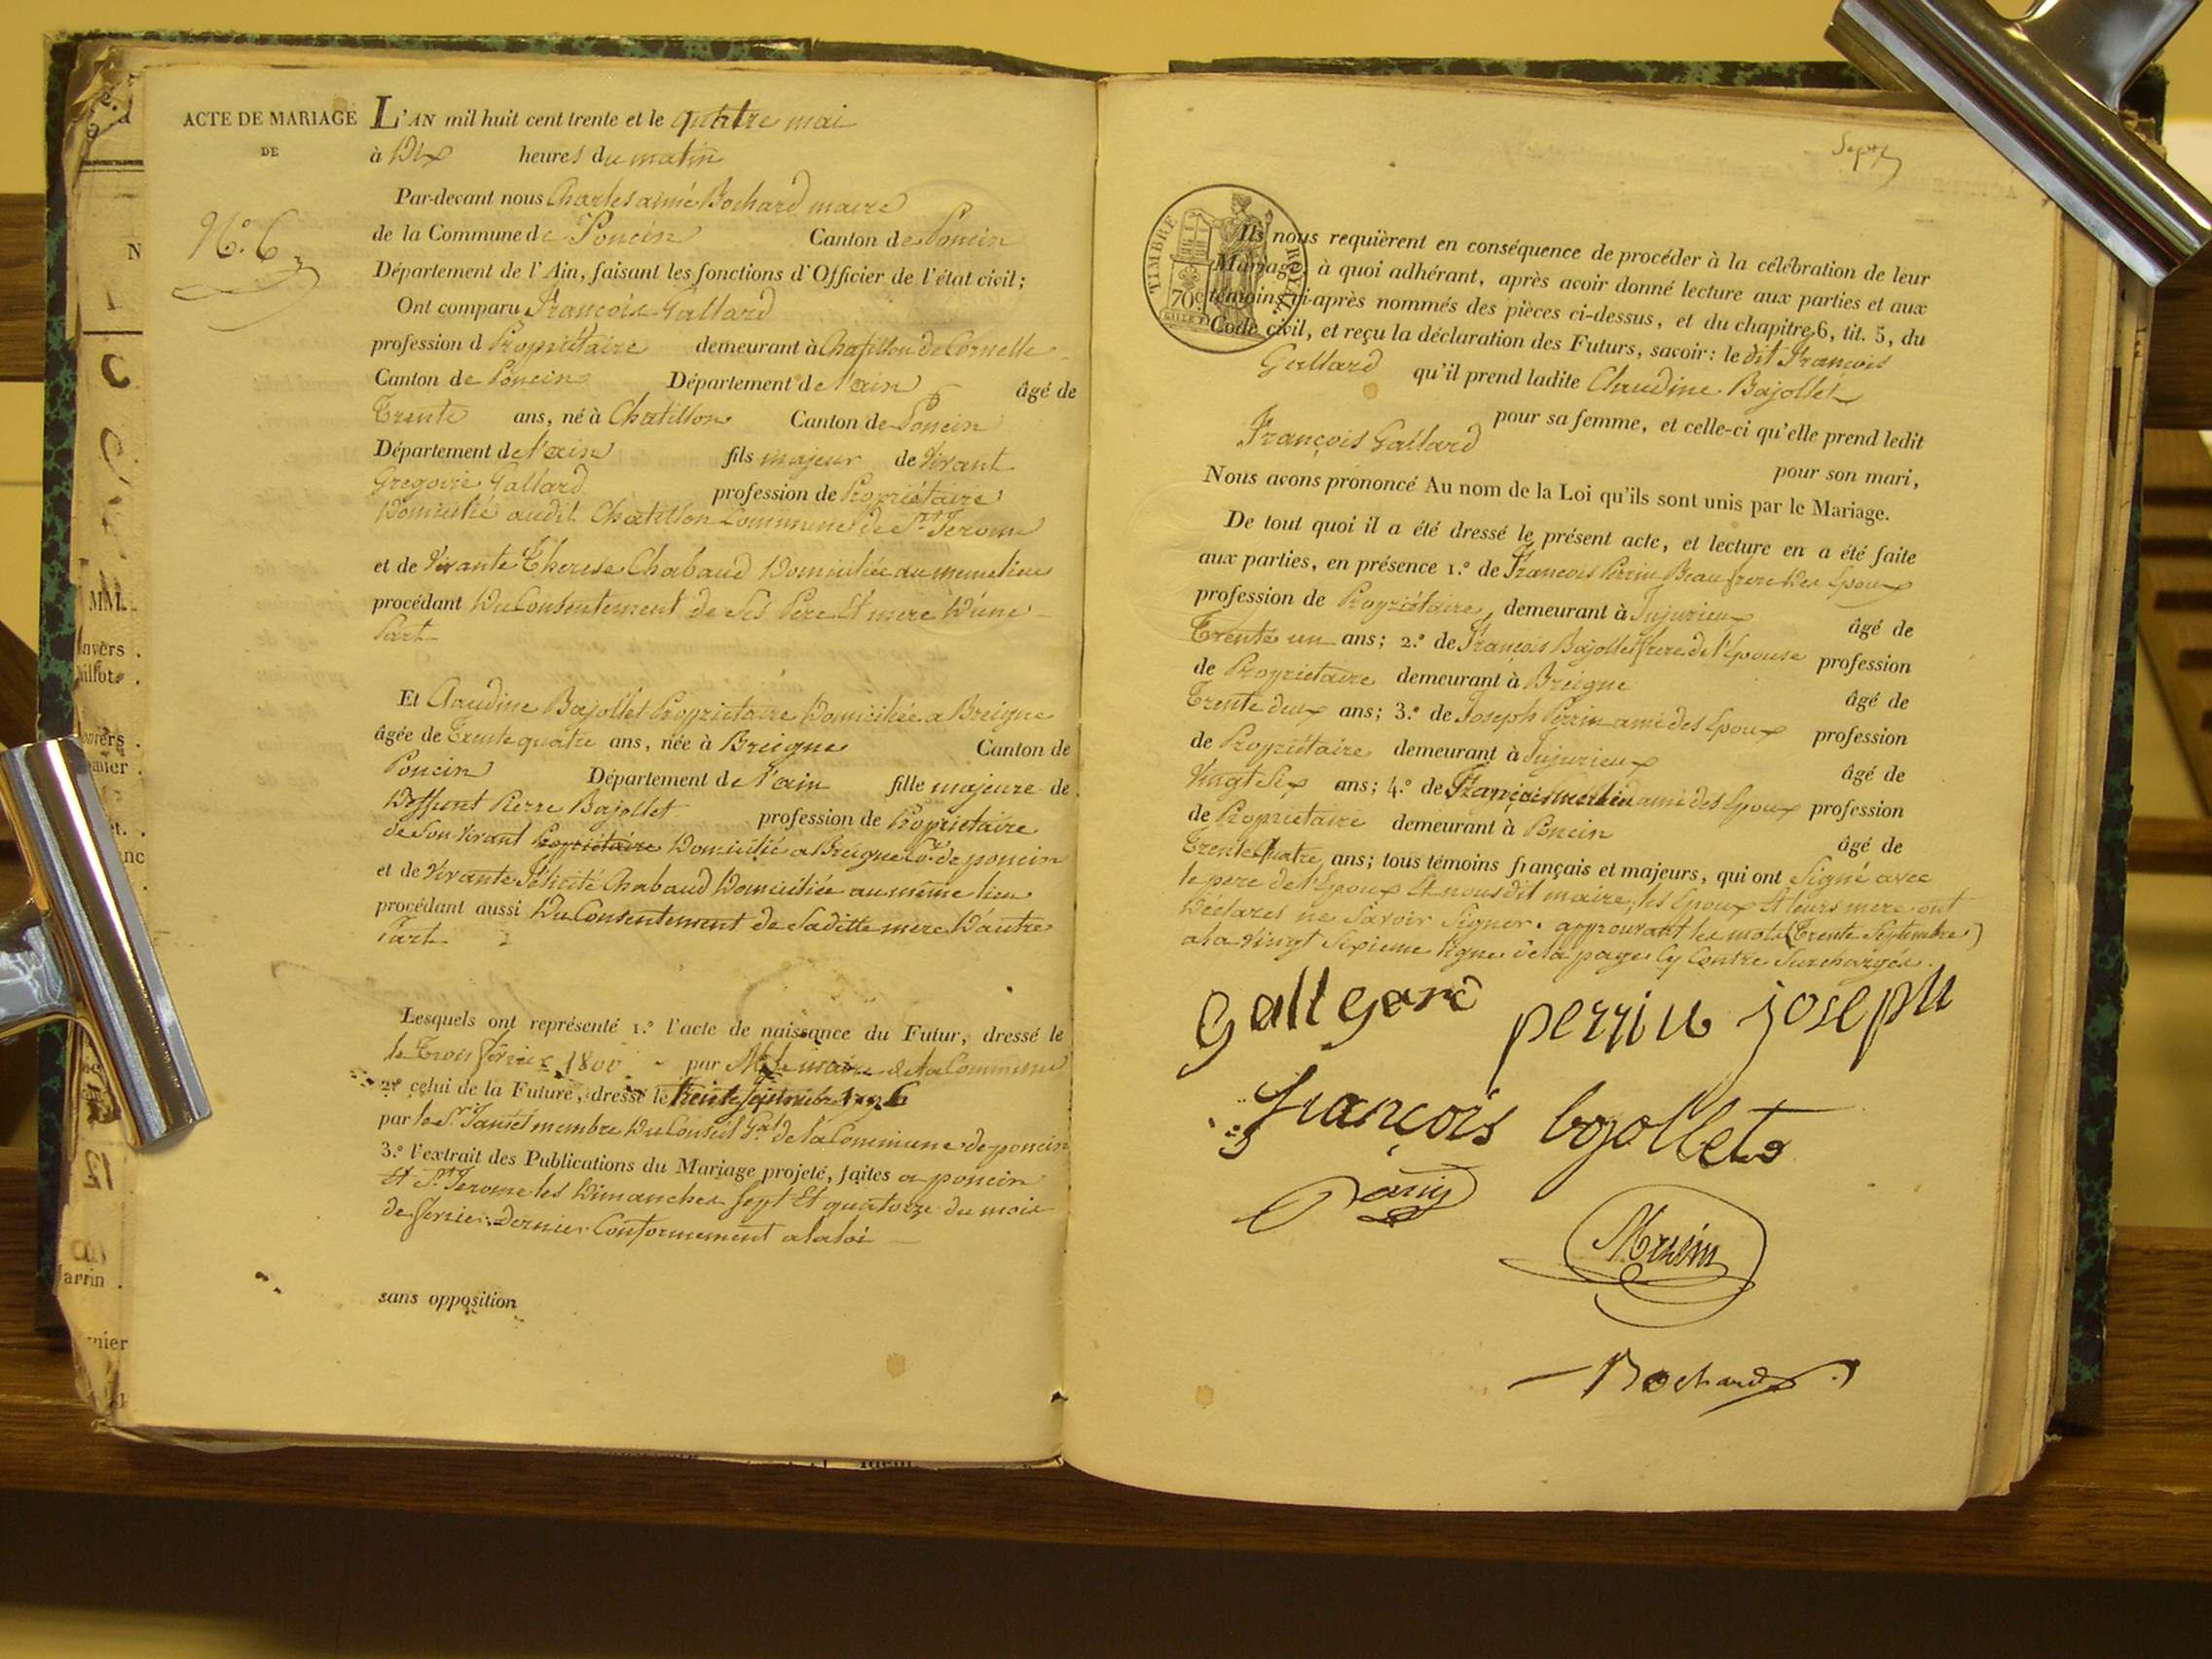 ACTE DE MARIAGE
DE
N.o 6
L'AN mil huit cent trente et le quatre mai
à Dix heures du matin
Par-devant nous Charles aimé Bochard maire
de la Commune de Poncin Canton de Poncin
Département de l'Ain, faisant les fonctions d'Officier de l'état civil;
Ont comparu François Gallard
profession d Propriétaire demeurant à Chatillon de Cornelle
Canton de Poncin Département de l'ain âgé de
Trente ans, né à Chatillon Canton de Poncin
Département de l'ain fils majeur de Vivant
Gregoire Gallard profession de Propriétaire
Domicilié audit Chatillon Commune de St Jerome
et de Vivante Therese Chabaud Domiciliée au meme lieu
procédant Du Consentement de Ses Pere Et mere D'une
Part
Et Claudine Bajollet Propriétaire Domiciliée a Breigne
âgée de Trente quatre ans, née à Breigne Canton de
Poncin Département de l'ain fille majeure de
Deffunt Pierre Bajollet profession de Propriétaire
de Son Vivant Propriétaire Domicilié a Breigne Cne de poncin
et de Vivante Félicité Chabaud Domiciliée au même lieu
procédant aussi Du Consentement de Saditte mere D'autre
Part
Lesquels ont représenté 1.o l'acte de naissance du Futur, dressé le
le Trois fevrier 1800 par Mr Le maire de la Commune
2.o celui de la Future, dressé le Trente Septembre 1796
par le Sr Jantet membre Du Conseil Gal de la Commune de poncin
3.o l'extrait des Publications du Mariage projeté, faites a poncin
Et St Jerome les Dimanches Sept Et quatorze du mois
de fevrier Dernier Conformement a la loi
sans opposition
Sept
TIMBRE ROYAL
70c
Ils nous requièrent en conséquence de procéder à la célébration de leur
Mariage; à quoi adhérant, après avoir donné lecture aux parties et aux
témoins ci-après nommés des pièces ci-dessus, et du chapitre 6, tit. 5, du
Code civil, et reçu la déclaration des Futurs, savoir: le dit François
Gallard qu'il prend ladite Claudine Bajollet
pour sa femme, et celle-ci qu'elle prend ledit
François Gallard
pour son mari,
Nous avons prononcé Au nom de la Loi qu'ils sont unis par le Mariage.
De tout quoi il a été dressé le présent acte, et lecture en a été faite
aux parties, en présence 1.o de Francois Perrin Beau frere Des Epoux
profession de Propriétaire, demeurant à Jujurieux âgé de
Trente un ans; 2.o de François Bajollet frere de l'Epouse profession
de Propriétaire demeurant à Breigne âgé de
Trente deux ans; 3.o de Joseph Perrin ami des Epoux profession
de Propriétaire demeurant à Jujurieux âgé de
Vingt Six ans; 4.o de François merlin ami des Epoux profession
de Propriétaire demeurant à Poncin âgé de
Trente Quatre ans; tous témoins français et majeurs, qui ont Signé avec
le pere de l'Epoux Et nous dit maire, les Epoux Et leurs mere ont
Déclarés ne Savoir Signer. approuvant les mots (Trente Septembre)
a la Vingt Sixieme ligne de la page Cy Contre Surchargés.
perrin joseph
françois bajollet
Bochard